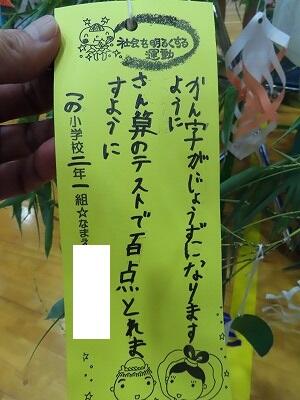 社会を明るくする
運動
かん字がじょうずになります
ように
さん算のテストで百点とれま
すように
小学校二年一組☆なまえ